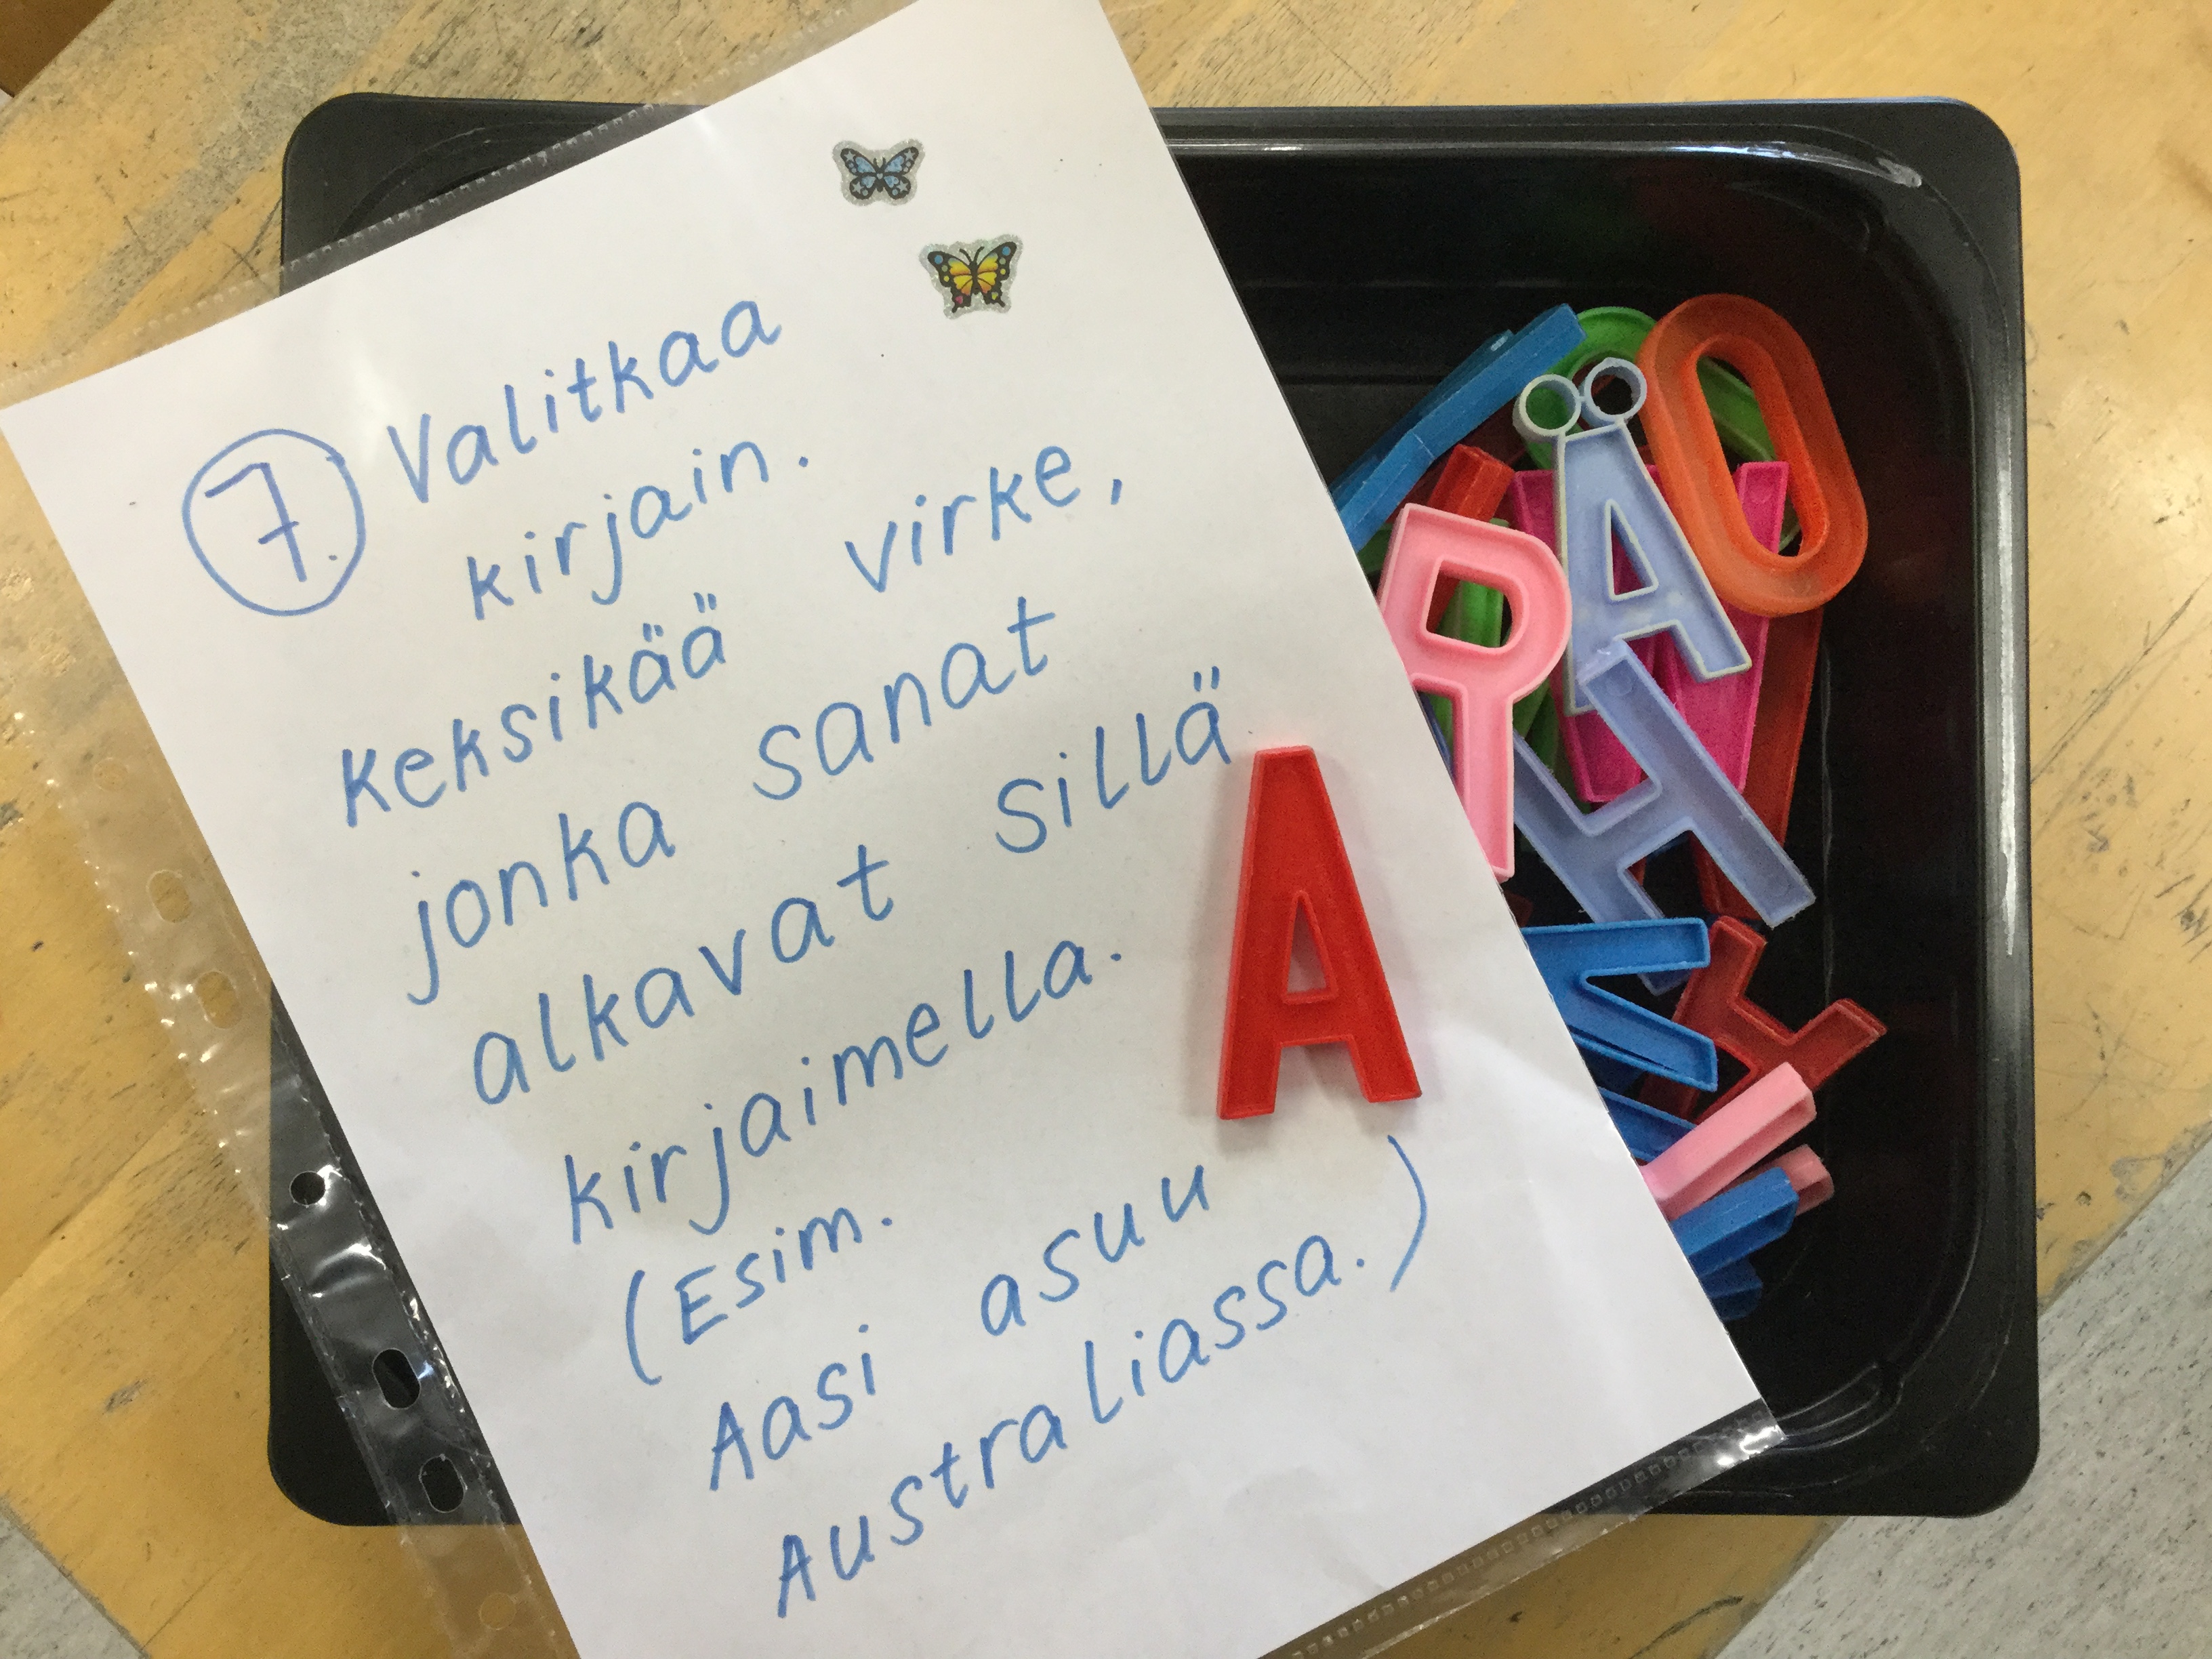 7. Valitkaa
kirjain.
Keksikää virke,
jonka sanat
alkavat sillä
kirjaimella.
(Esim.
Aasi asuu
Australiassa.)
A
O
Ä
R
H
K